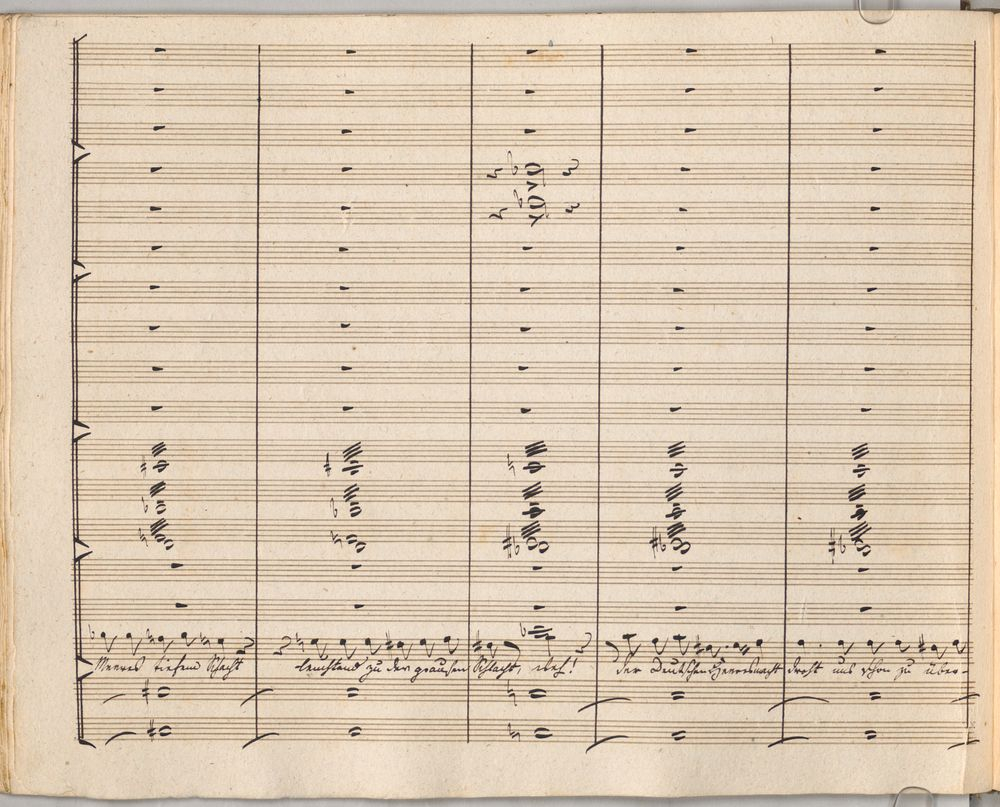 Meeres tiefem Schacht leuchtend zu der grausen Schlacht, weh! der Deutschen Heeresmacht droht uns schon zu über-